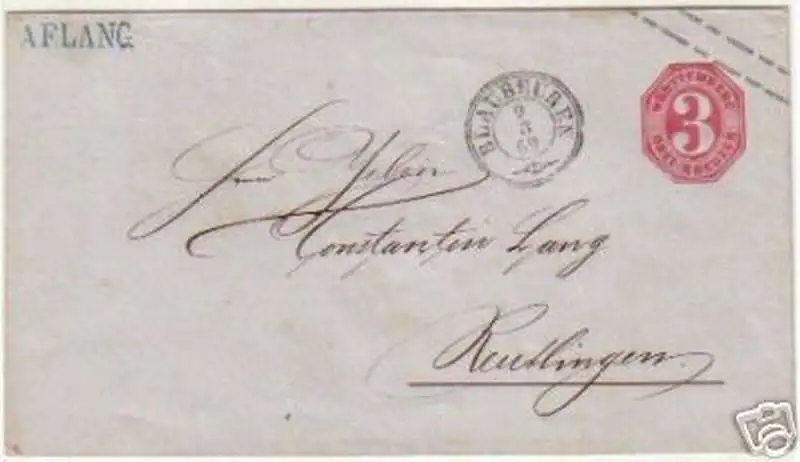 AFLANG
BLAUBEUREN
9
3
69
WÜRTTEMBERG
3
DREI KREUZER
Constantin Lang
Reutlingen.